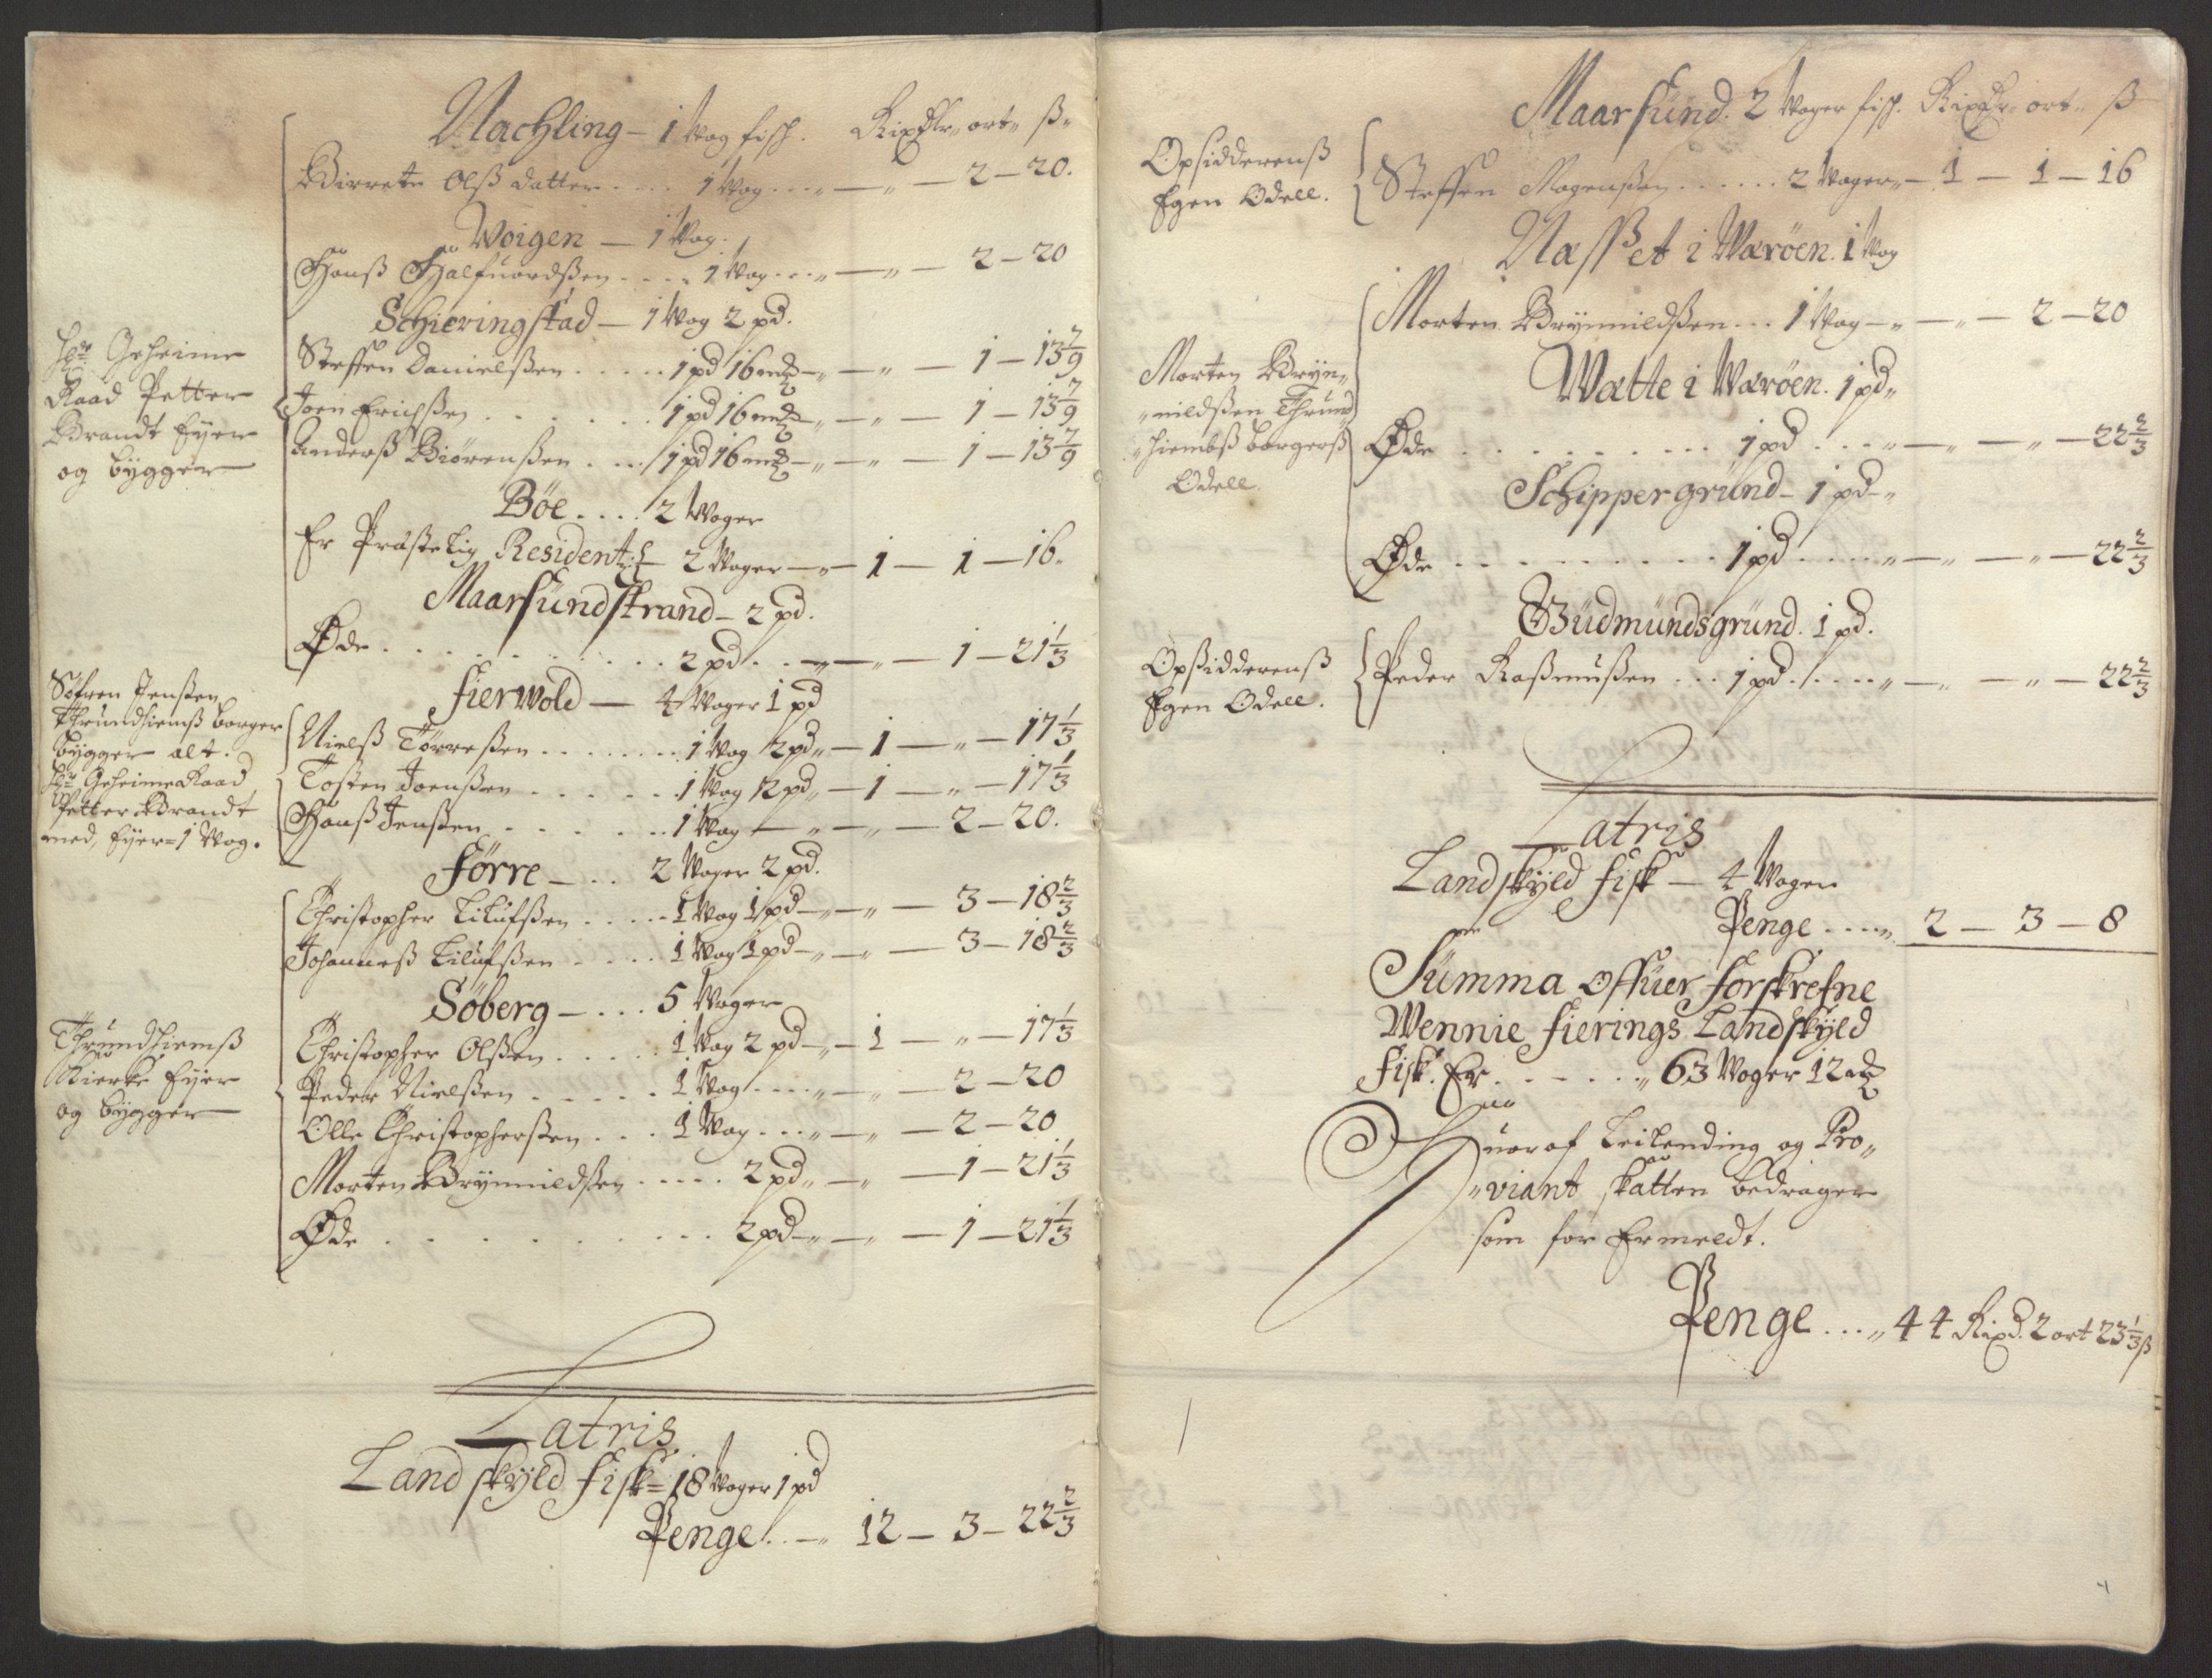 Nachling – 1 Wog fisk. Rixdlr„ ort„ ß„
Birrete Olß datter .... 1 Wog ... „ — „ — 2 – 20.
Woigen — 1 Wog.
Hanß Halfuordßen .... 1 Wog ... „ — „ — 2 – 20
Schieringstad – 1 Wog 2 pd.
Hr Geheime
Raad Petter
Brandt Eyer
og bygger
Steffen Danielßen ..... 1 pd 16 mk – „ — „ — 1 – 13 7/9
Joen Erichßen ...... 1 pd 16 mk – „ — „ — 1 – 13 7/9
Anderß Biörenßen ... 1 pd 16 mk – „ — „ — 1 – 13 7/9
Böe .... 2 Woger
Er Præstelig Residentz – 2 Woger — „ – 1 — 1 – 16.
Maarsundstrand – 2 pd.
Øde ........... 2 pd .. — „ — „ — 1 – 21 1/3
Fierwold — 4 Woger 1 pd
Söfren Jenßen
Thrundhiemß borger
bygger alt.
Hr Geheime Raad
Petter Brandt
med, Eyer = 1 Wog.
Nielß Törreßen ........ 1 Wog 2 pd„ – 1 — „ – 17 1/3
Tosten Joenßen ...... 1 Wog 2 pd„ – 1 — „ – 17 1/3
Hanß Jenßen ...... 1 Wog — „ — „ — 2 – 20.
Förre – .. 2 Woger 2 pd.
Christopher Lilufßen ..... 1 Wog 1 pd – „ — „ — 3 – 18 2/3
Johanneß Lilufßen .... 1 Wog 1 pd – „ — „ — 3 – 18 2/3
Söberg – ... 5 Woger
Thrundhiemß
Kierke Eyer
og bygger
Christopher Olßen ..... 1 Wog 2 pd – „ – 1 — „ – 17 1/3
Peder Nielßen ..... 1 Wog .... „ — „ — 2 – 20
Olle Christopherßen ... 1 Wog ... „ — „ — 2 – 20
Morten Brynnildßen ..... 2 pd„ — „ — 1 – 21 1/3
Øde .......... 2 pd – „ — „ — 1 – 21 1/3
Latris
Landskyld Fisk = 18 Woger 1 pd
Penge .. — „ 12 – 3 – 22 2/3
Maarsund. 2 Woger fisk. Rixdlr„ ort„ ß
Opsidderenß
Egen Odell.
Steffen Mogenßen ...... 2 Woger„ – 1 — 1 – 16
Nasset i Waröen. 1 Wog
Morten Brynnildßen ... 1 Wog – „ — „ — 2 – 20
Watte i Waröen. 1 pd„
Morten Bryn„
„nildßen Thrund
„hiembß borgerß
Odell.
Øde ......... 1 pd ... „ — „ — „ — 22 2/3
Schippergrund – 1 pd – „
Øde ......... 1 pd .... „ — „ — „ — 22 2/3
Gudmundsgrund. 1 pd.
Opsidderenß
Egen Odell.
Peder Raßmußen ... 1 pd ..... „ — „ — „ — 22 2/3
Latris
Landskyld Fisk — 4 Woger
Penge .... „ 2 — 3 – 8
Summa Offuer Forskrefne
Wennie Fierings Landskyld
Fisk. Er ...... „ 63 Woger 12 mk
Huor af Leilending og Pro„
„viant skatten bedrager
som för Ermeldt.
Penge ... „ 44 Rixd. 2 ort 23 1/3 ß